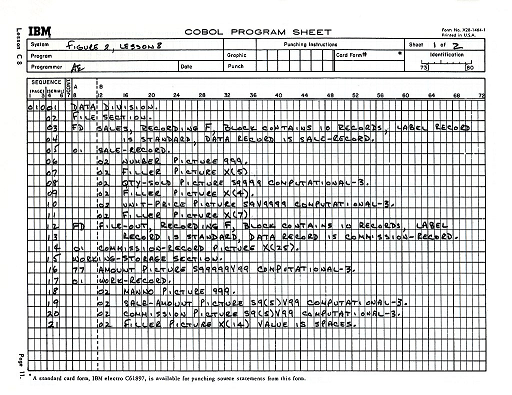 IBM
COBOL PROGRAM SHEET
Form No. X28-1464-1
Printed in U.S.A.
Lesson C 8
System FIGURE 2, LESSON 8
Punching Instructions
Sheet 1 of 2
Program
Graphic
Card Form# *
Identification
Programmer
Date
Punch
73 80
SEQUENCE
(PAGE) (SERIAL)
CONT.
A B
1 3 4 6 7 8 12 16 20 24 28 32 36 40 44 48 52 56 60 64 68 72
01001 DATA DIVISION.
02 FILE SECTION.
03 FD SALES, RECORDING F, BLOCK CONTAINS 10 RECORDS, LABEL RECORD
04 IS STANDARD, DATA RECORD IS SALE-RECORD.
05 01 SALE-RECORD.
06 02 NUMBER PICTURE 999.
07 02 FILLER PICTURE X(5)
08 02 QTY-SOLD PICTURE S9999 COMPUTATIONAL-3.
09 02 FILLER PICTURE X(4).
10 02 UNIT-PRICE PICTURE S9V9999 COMPUTATIONAL-3.
11 02 FILLER PICTURE X(7)
12 FD FILE-OUT, RECORDING F, BLOCK CONTAINS 10 RECORDS, LABEL
13 RECORD IS STANDARD, DATA RECORD IS COMMISSION-RECORD.
14 01 COMMISSION-RECORD PICTURE X(25).
15 WORKING-STORAGE SECTION.
16 77 AMOUNT PICTURE S99999V99 COMPUTATIONAL-3.
17 01 WORK-RECORD.
18 02 MANNO PICTURE 999.
19 02 SALE-AMOUNT PICTURE S9(5)V99 COMPUTATIONAL-3.
20 02 COMMISSION PICTURE S9(5)V99 COMPUTATIONAL-3.
21 02 FILLER PICTURE X(14) VALUE IS SPACES.
Page 11.
* A standard card form, IBM electro C61897, is available for punching source statements from this form.